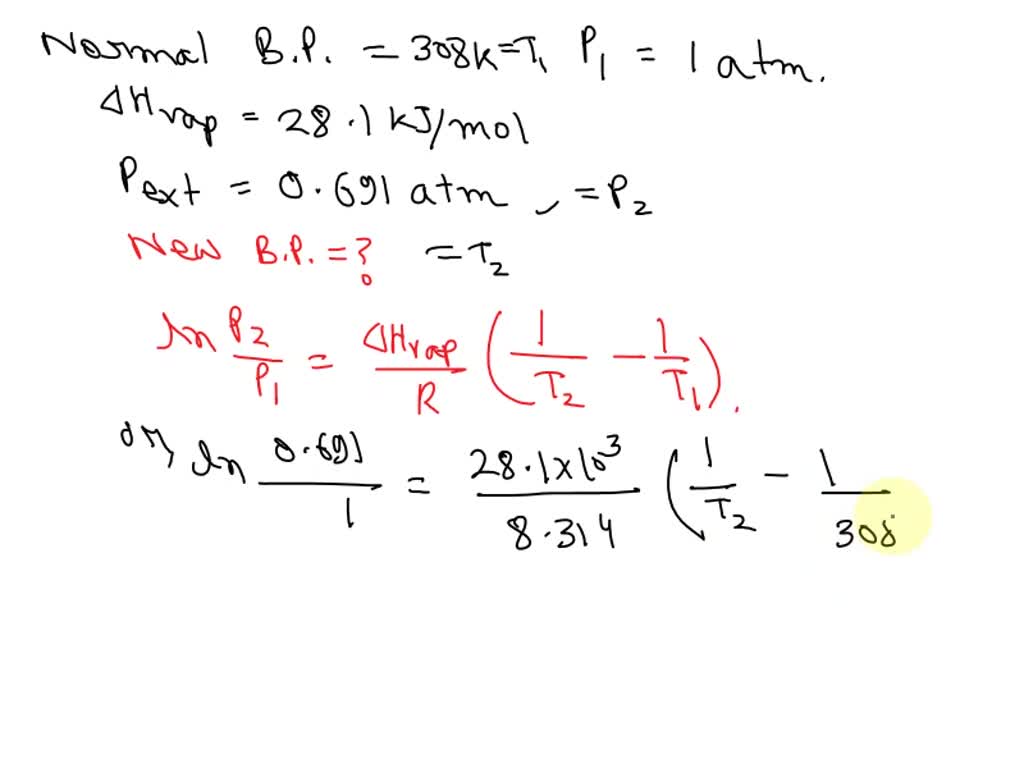 Normal B.P. = 308K = T₁ P₁ = 1 atm.
ΔHvap = 28.1 KJ/mol
Pext = 0.691 atm, = P₂
New B.P. = ? = T₂
ln P₂/P₁ = ΔHvap/R (1/T₂ - 1/T₁).
or, ln 0.691/1 = 28.1x10³/8.314 (1/T₂ - 1/308